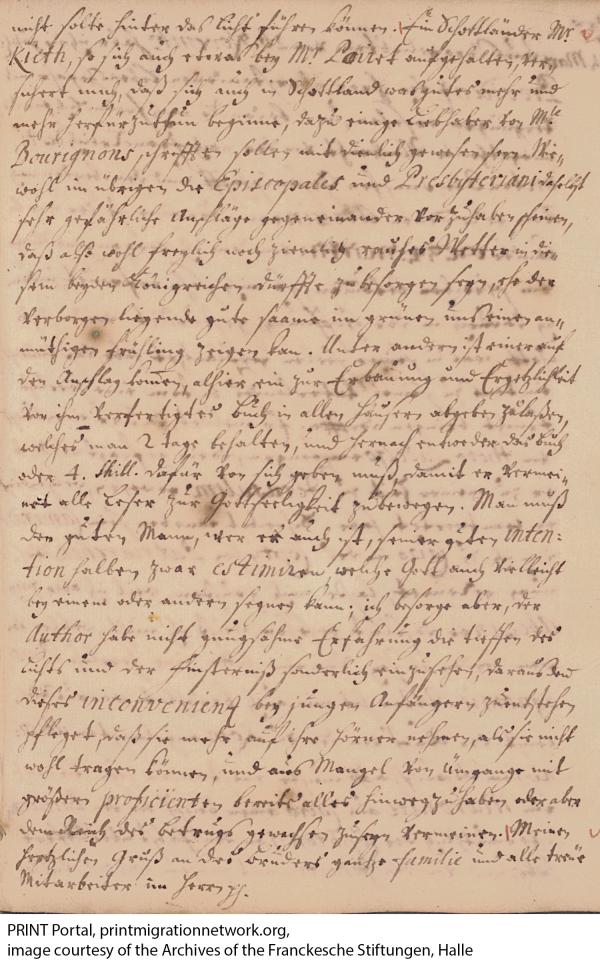 nicht solte hinter das Licht führen können. Ein Schottländer Mr.
Kieth, so sich auch etwas bey Mr. Poiret aufgehalten, ver-
sichert mich, daß sich auch in Schottland was gutes mehr und
mehr herfürzuthun beginne, dazu einige Liebhaber von Mlle
Bourignons schrifften sollen mit dienlich gewesen seyn. Wie„
wohl im übrigen die Episcopales und Presbyteriani daselbst
sehr gefährliche Anschläge gegeneinander vorzuhaben scheinen,
daß also wohl freylich noch ziemlich rauhes Wetter in die„
sem beyden Königreichen dürffte zubesorgen seyn, ehe der
verborgen liegende gute saame im grünen uns einen an„
müthigen Frühling zeigen kan. Unter andern ist einer auf
den Anschlag kom̅en, alhier ein zur Erbauung und Ergetzlichkeit
von ihm verfertigtes Buch in allen Häusern abgeben zulaßen,
welches man 2 tage behalten, und hernach entweder das Buch
oder 4. Shill. dafür von sich geben muß, damit er vermei„
net alle Leser zur Gottseeligkeit zubewegen. Man muß
den guten Mann, wer er auch ist, seiner guten inten:
tion halben zwar estimiren, welche Gott auch vielleicht
bey einem oder andern segnen kann; ich besorge aber, der
Author habe nicht gnugsahme Erfahrung die tieffen des
Lichts und der Finsterniß sonderlich einzusehen, daraus den
dieses inconvenienz bey jungen Anfängern zuentstehen
pfleget, daß sie mehr auf ihre Hörner nehmen, als sie nicht
wohl tragen können, und aus Mangel von Umgange mit
größern proficienten bereits alles hinweg zuhaben oder aber
dem des betrugs gewachsen zuseyn vermeinen. Meinen
hertzlichen Gruß an des Bruders gantze familie und alle treue
Mitarbeiter im Herrn pp.
PRINT Portal, printmigrationnetwork.org,
image courtesy of the Archives of the Franckesche Stiftungen, Halle